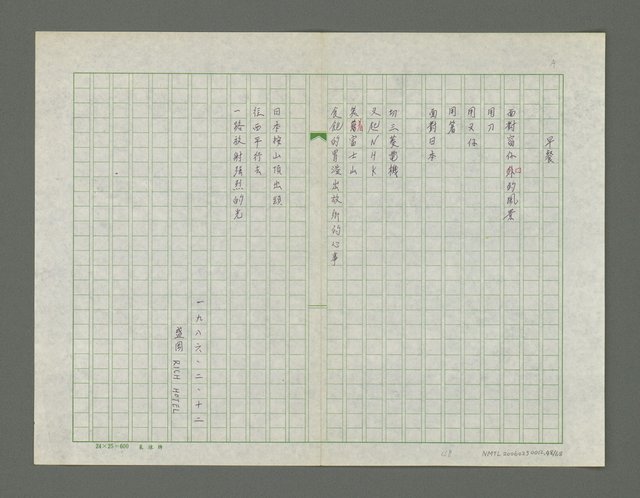 早餐
面對窗仔外口的風景
用刀
用叉仔
用箸
面對日本
切三菱電機
叉起NHK
富士山
食飽的胃溢出放所的心事
日本按山頂出頭
往西平行去
一路放射強烈的光
一九八六、二、十二
盛岡 RICH HOTEL
24×25=600
NMTL20060250012.48/68